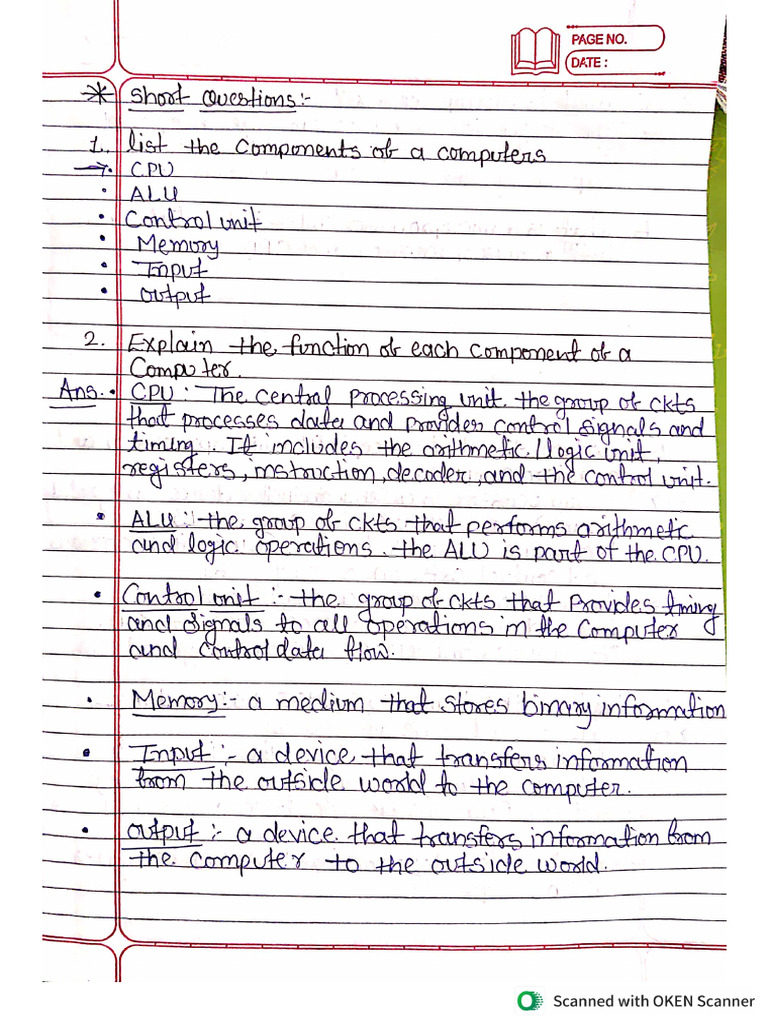 PAGE NO.
DATE :
* Short Questions:-
1. List the Components of a computers
→ • CPU
• ALU
• Control unit
• Memory
• Input
• output
2. Explain the function of each component of a
Computer.
Ans. • CPU : The central processing unit. the group of ckts
that processes data and provides control signals and
timing. It includes the arithmetic / logic unit,
registers, instruction, decoder, and the control unit.
• ALU :- the group of ckts that performs arithmetic
and logic operations. the ALU is part of the CPU.
• Control unit :- the group of ckts that Provides timing
and signals to all operations in the Computer
and control data flow.
• Memory:- a medium that stores binary information
• Input :- a device that transfers information
from the outside world to the computer.
• output :- a device that transfers information from
the Computer to the outside world.
Scanned with OKEN Scanner